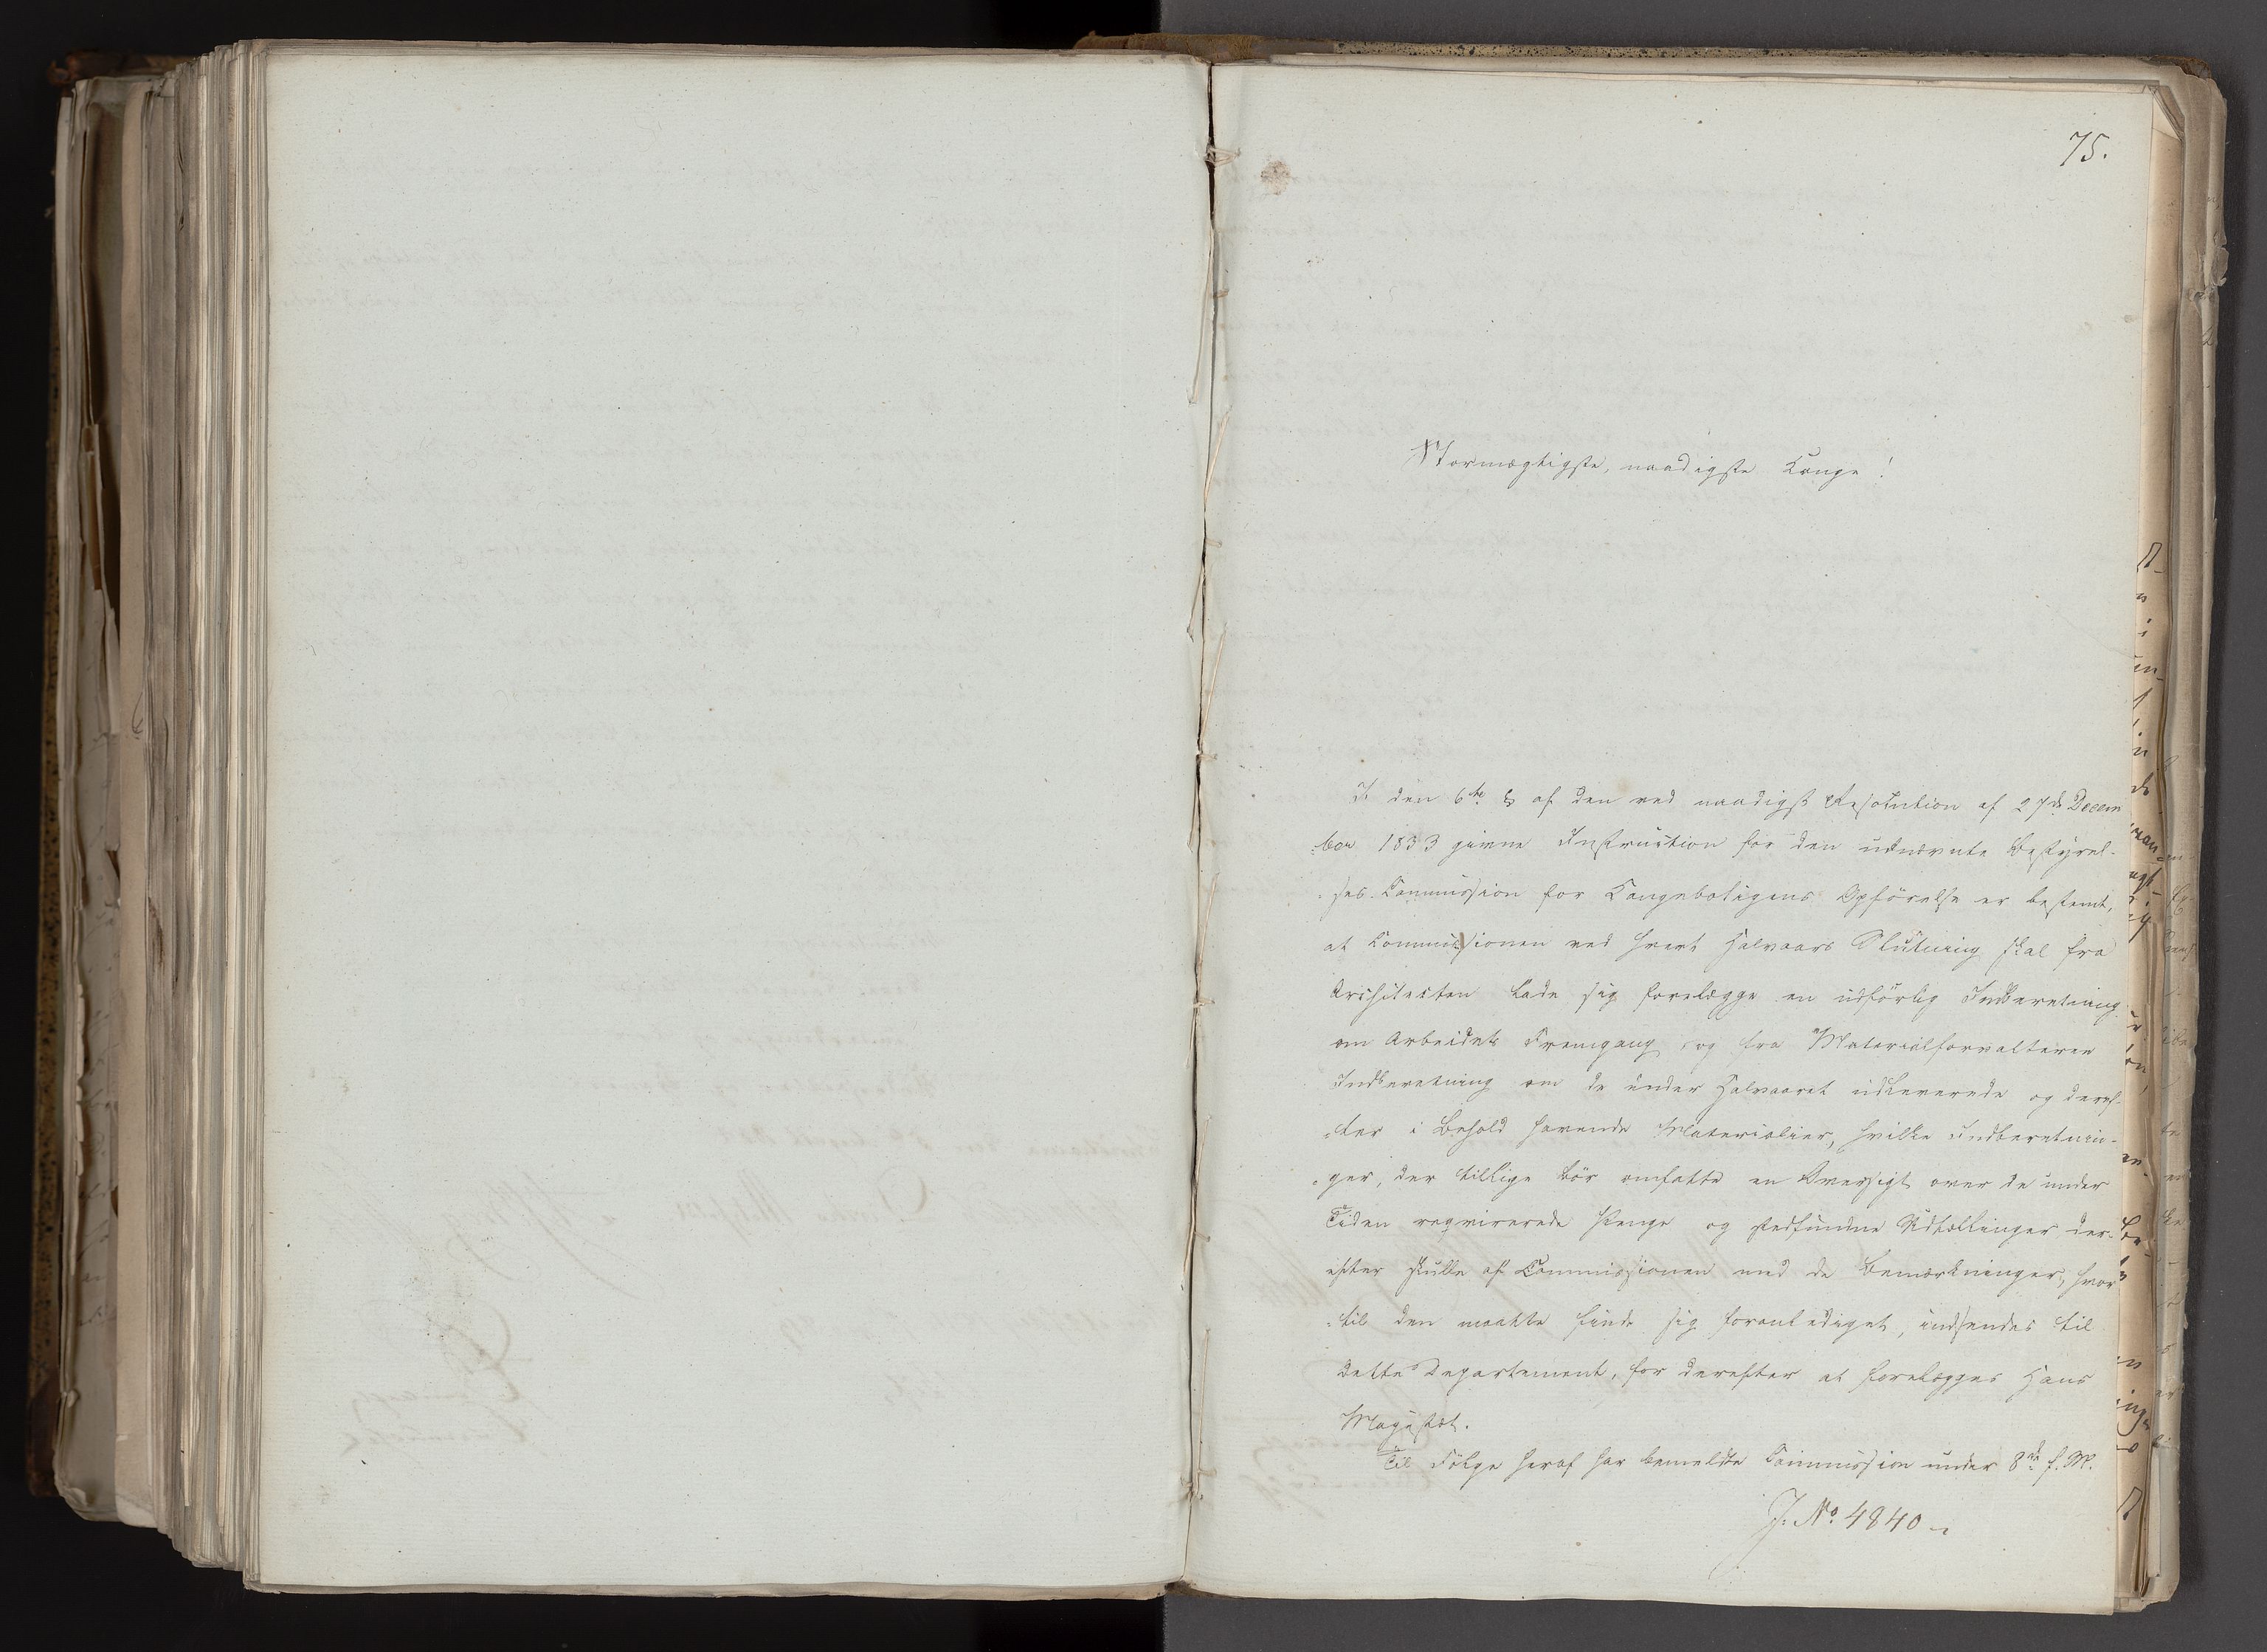 75.
Stormægtigste, naadigste Konge!
I den 6te § af den ved naadigst Resolution af 27de Decem
=ber 1833 givne Instruction for den udnævnte Bestyrel-
=ses-Commission for Kongeboligens Opförelse er bestemt,
at Commissionen ved hvert Halvaars Slutning skal fra
Architecten lade sig forelægge en udförlig Indberetning
om Arbeidets Fremgang, og fra Materialforvalteren
Indberetning om de under Halvaaret udleverede og deref-
=ter i Behold havende Materialier, hvilke Indberetnin-
=ger, der tillige bör omfatte en Oversigt over de under
Tiden reqvirerede Penge og stedfundne Udtællinger der-
efter skulle af Commissionen med de Bemærkninger, hvor
=til den maatte finde sig foranlediget, indsendes til
dette Departement, for derefter at forelægges Hans
Majestæt.
Til Fölge heraf har bemeldte Commission under 8de f. M.
J. No. 4840